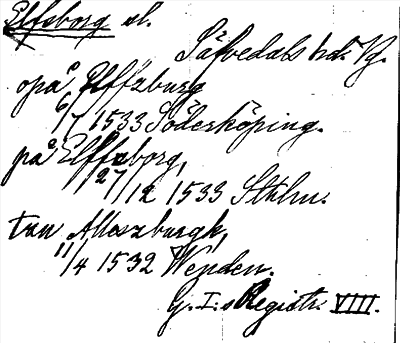 Elfsborg sl.
Säfvedals hd. Vg.
opå Elffzburg
6/7 1533 Söderköping.
på Elffzborg,
27/12 1533 Sthlm.
tun Allaszburgk,
11/4 1532 Weyden.
G. I:s Registr. VIII.